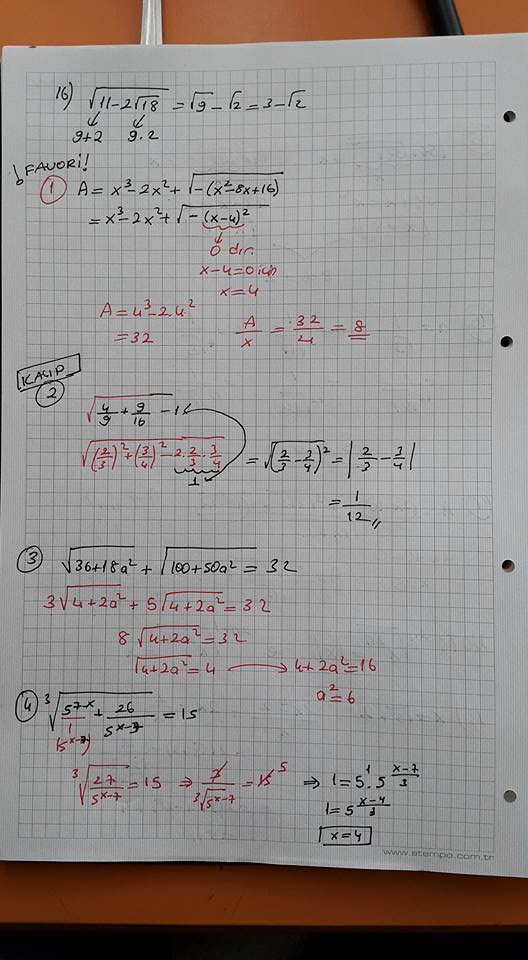 16) √(11-2√18) = √9 - √2 = 3-√2
9+2 9.2
! FAVORİ!
1 A = x³-2x² + √(-(x²-8x+16))
= x³-2x² + √(-(x-4)²)
0 dır.
x-4=0 için
x=4
A = 4³-2.4²
= 32
A/x = 32/4 = 8
KALIP
2
√(4/9 + 9/16 - 1)
√((2/3)² + (3/4)² - 2.2/3.3/4) = √((2/3 - 3/4)²) = |2/3 - 3/4|
1
= 1/12
3 √(36+18a²) + √(100+50a²) = 32
3√(4+2a²) + 5√(4+2a²) = 32
8√(4+2a²) = 32
√(4+2a²) = 4 → 4+2a² = 16
a² = 6
4 ³√(5^(7-x)/1 + 26/5^(x-7)) = 15
(5^(x-7))
³√(27/5^(x-7)) = 15 ⇒ 3/³√5^(x-7) = 15 5 ⇒ 1 = 5¹.5^((x-7)/3)
1 = 5^((x-4)/3)
x=4
www.stempo.com.tr